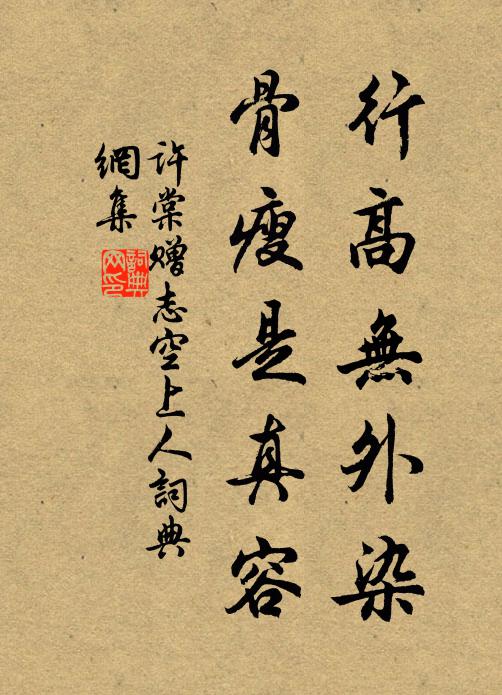 行高無外染
骨瘦是真容
許棠贈志空上人詞典
網集
詞典
网印